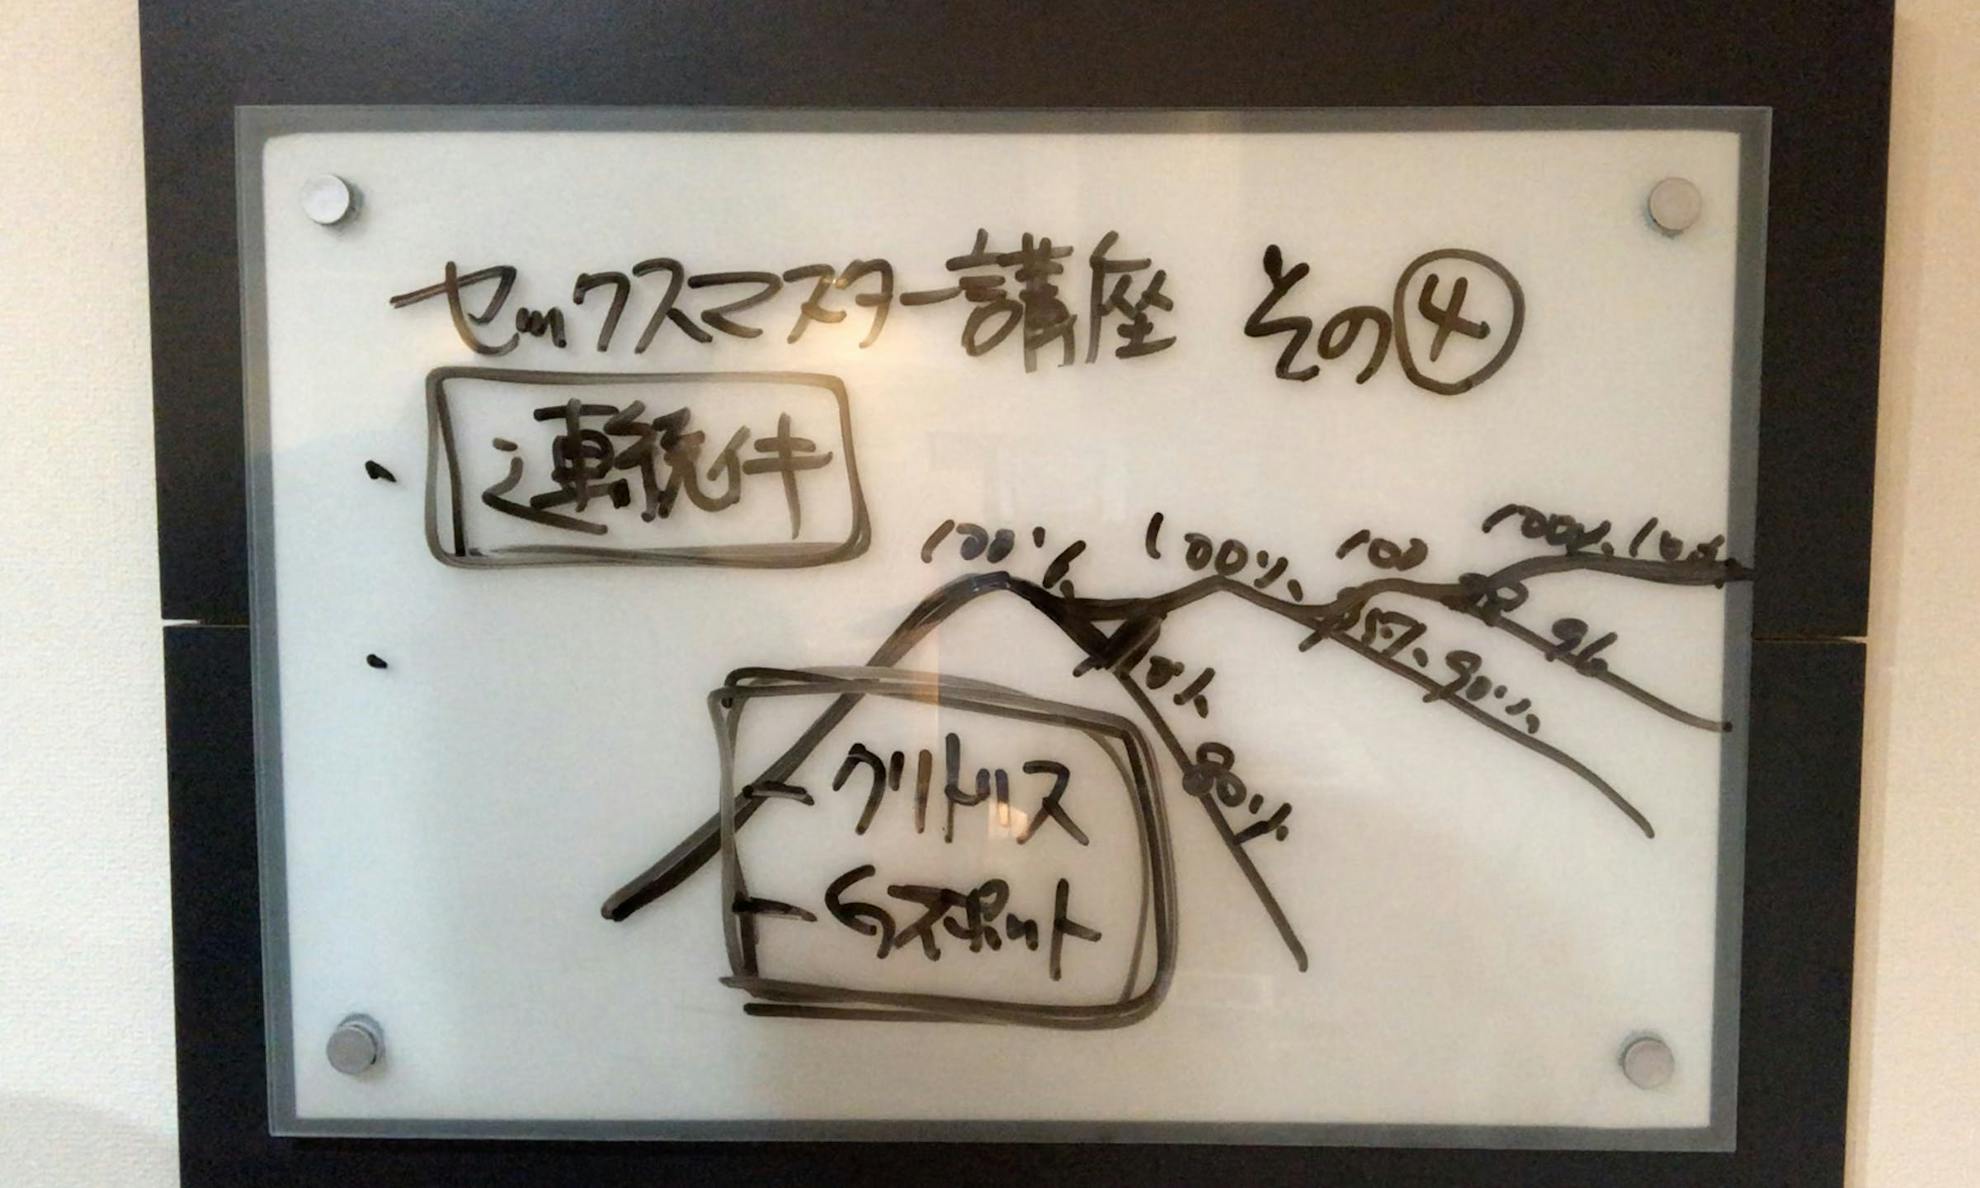 セックスマスター講座 その④
連続イキ
100% 100% 100 100% 100%
96
90%
80%
クリトリス
Gスポット